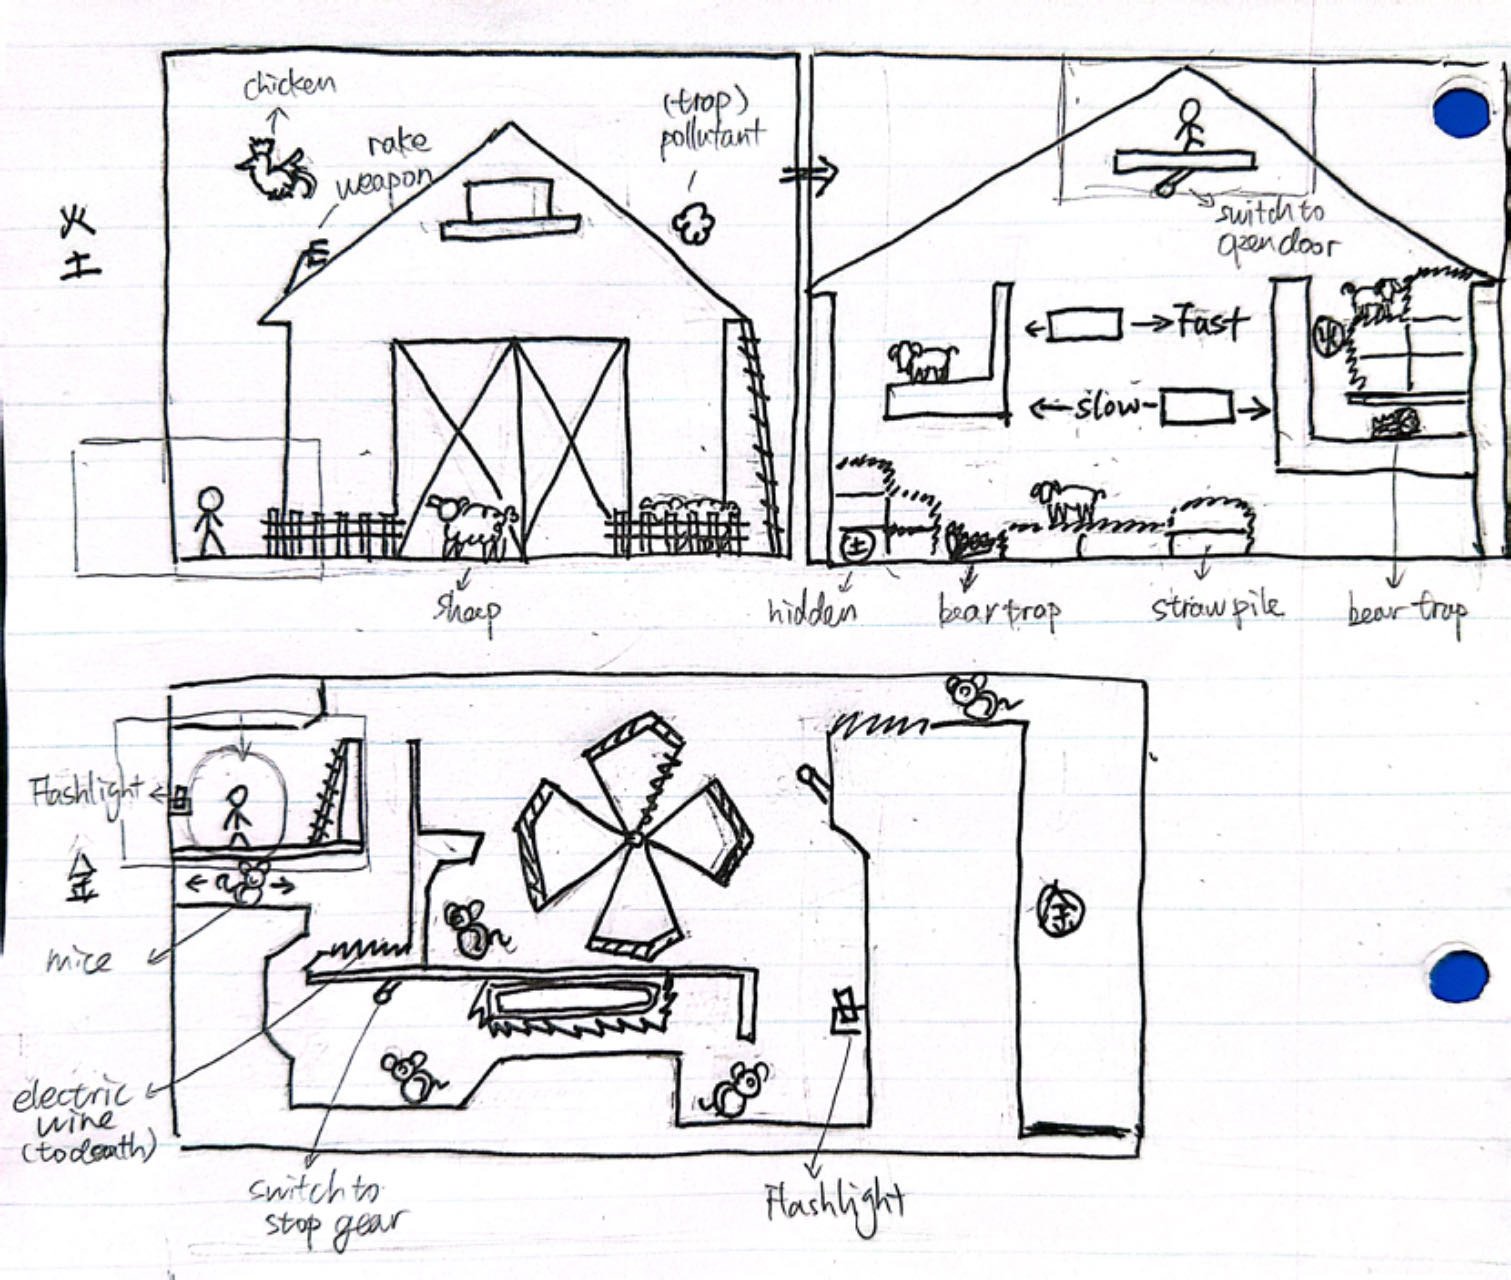 chicken
rake
weapon
(trap)
pollutant
火
土
switch to
open door
Fast
slow
火
土
sheep
hidden
bear trap
straw pile
bear trap
Flashlight
金
金
mice
electric
wire
(to death)
switch to
stop gear
Flashlight